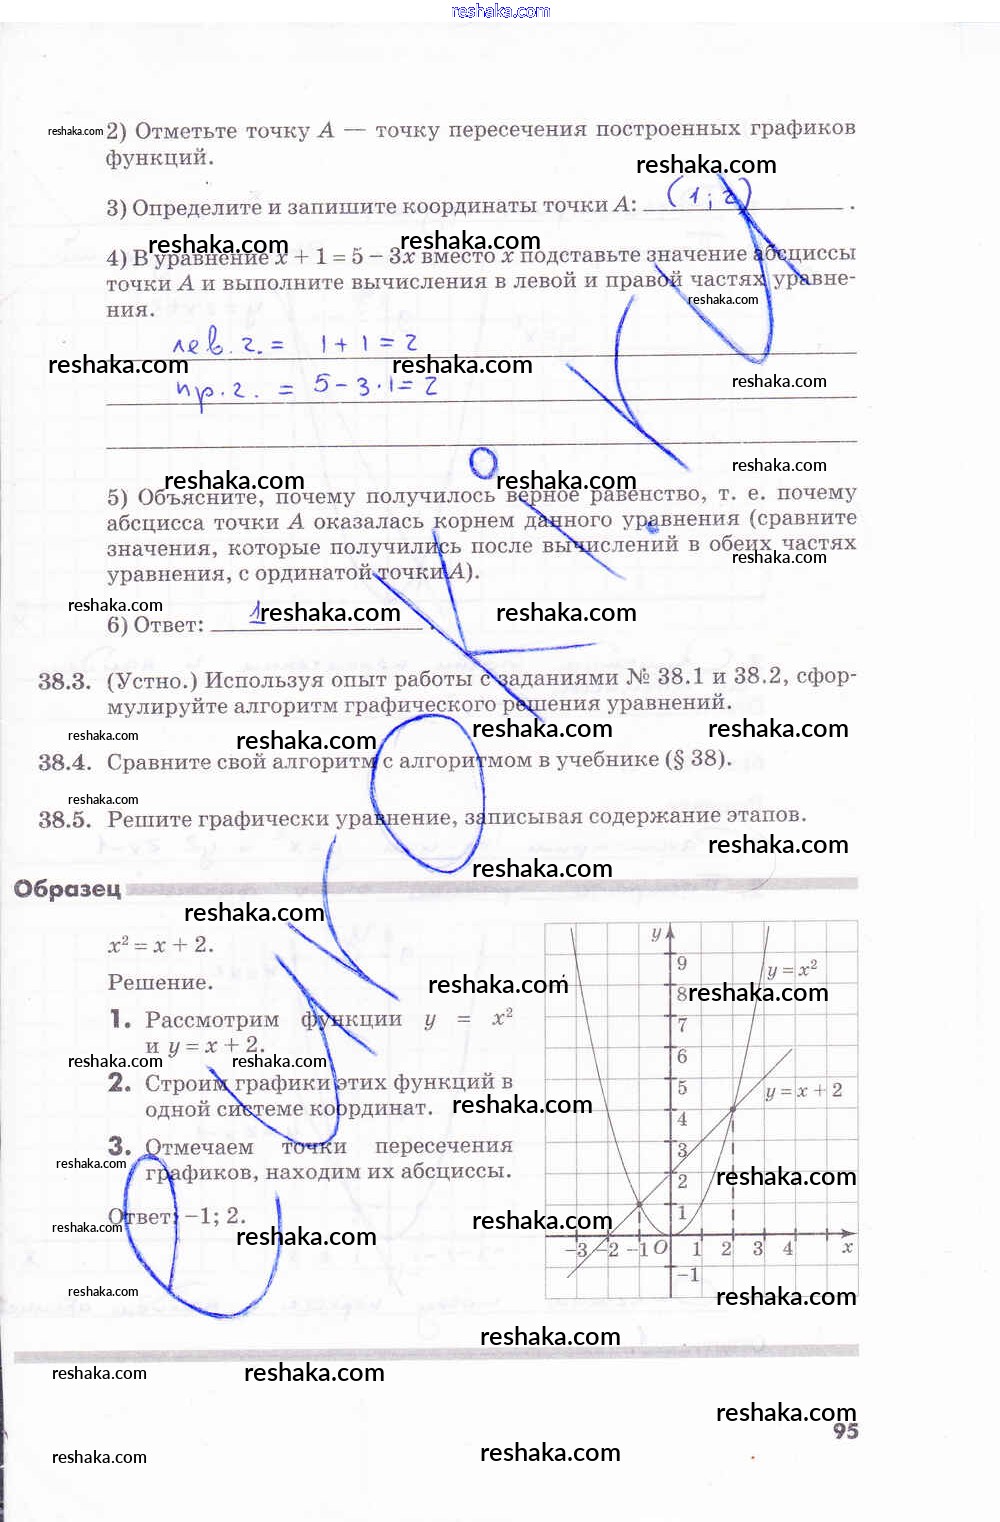 reshaka.com
reshaka.com 2) Отметьте точку A — точку пересечения построенных графиков
функций.
reshaka.com
3) Определите и запишите координаты точки A: (1; 2) .
reshaka.com reshaka.com
4) В уравнение x + 1 = 5 − 3x вместо x подставьте значение абсциссы
точки A и выполните вычисления в левой и правой частях уравне-
ния.
reshaka.com
лев. ч. = 1 + 1 = 2
reshaka.com reshaka.com
пр. ч. = 5 − 3 · 1 = 2
reshaka.com
reshaka.com
reshaka.com reshaka.com
5) Объясните, почему получилось верное равенство, т. е. почему
абсцисса точки A оказалась корнем данного уравнения (сравните
значения, которые получились после вычислений в обеих частях
reshaka.com
уравнения, с ординатой точки A).
reshaka.com reshaka.com reshaka.com
6) Ответ: 1 .
38.3. (Устно.) Используя опыт работы с заданиями № 38.1 и 38.2, сфор-
мулируйте алгоритм графического решения уравнений.
reshaka.com reshaka.com reshaka.com reshaka.com
38.4. Сравните свой алгоритм с алгоритмом в учебнике (§ 38).
reshaka.com
38.5. Решите графически уравнение, записывая содержание этапов.
reshaka.com
reshaka.com
Образец
reshaka.com
x² = x + 2.
Решение.
reshaka.com
1. Рассмотрим функции y = x²
и y = x + 2.
reshaka.com reshaka.com
2. Строим графики этих функций в
одной системе координат.
reshaka.com
3. Отмечаем точки пересечения
reshaka.com
графиков, находим их абсциссы.
Ответ: −1; 2.
reshaka.com reshaka.com reshaka.com
reshaka.com
y
9
y = x²
8
reshaka.com
7
6
5
y = x + 2
4
3
reshaka.com
2
1
−3 −2 −1 O 1 2 3 4 x
−1
reshaka.com
reshaka.com
reshaka.com reshaka.com
reshaka.com
95
reshaka.com reshaka.com